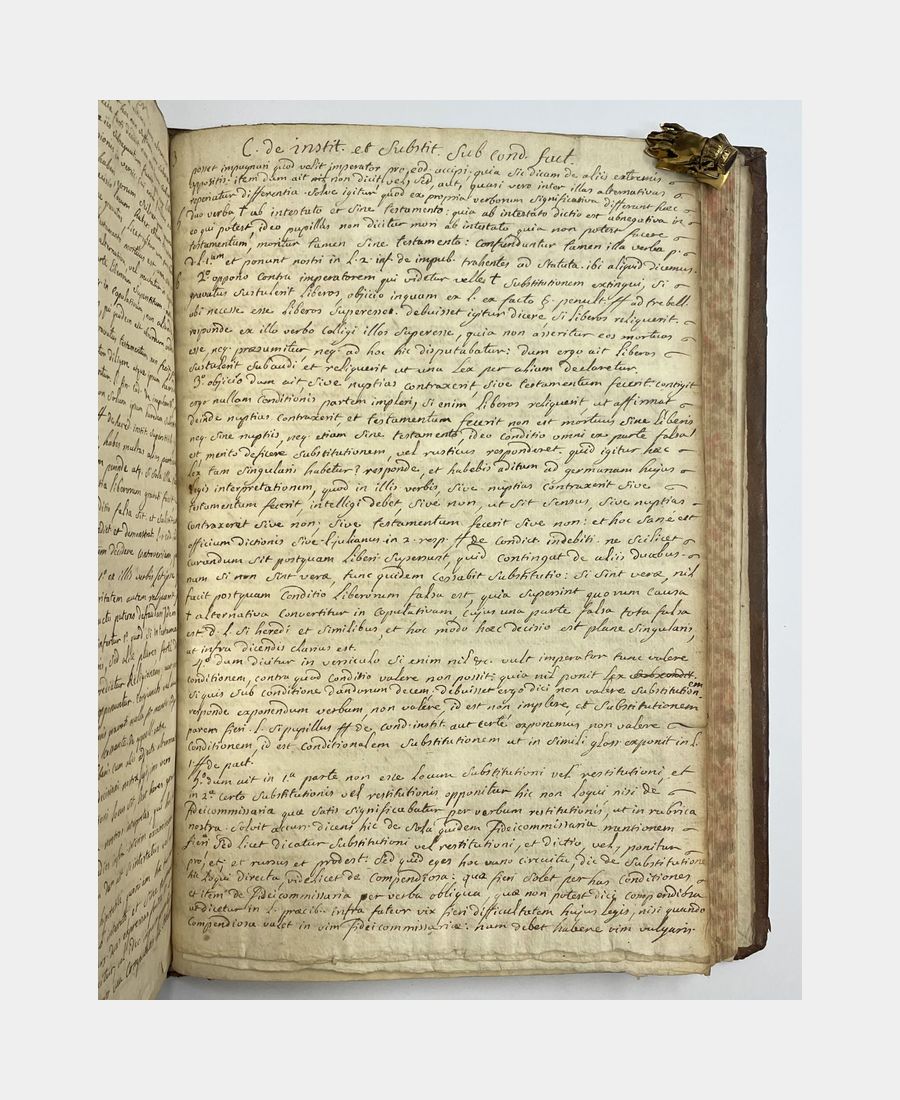 C. de instit. et substit. sub cond. fact.
posset impugnari quod velit imperator pro, eod. accipi. quia sic dicam de aliis extremis
oppositis. item dum ait non dicit vel, sed, aut, quasi vero inter illas alternativas
reperiatur differentia. Solve igitur quod ex propria verborum significativa differunt haec
duo verba † ab intestato et sine testamento: quia ab intestato dictio est abnegativa in
eo qui potest, ideo pupillus non dicitur mori ab intestato quia non potest facere
testamentum, moritur tamen sine testamento: confunduntur tamen illa verba
et ponunt nostri in l. 2. inf. de impub. trahentes ad statuta. ibi aliquid dicemus.
2.º oppono contra imperatorem qui videtur velle † substitutionem extingui, si
gravatus sustulerit liberos, objicio inquam ex l. ex facto §. penult. ff ad trebell.
ubi necesse esse liberos superesse. debuisset igitur dicere si liberos reliquerit.
responde ex illo verbo colligi illos superesse, quia non asseritur eos mortuos
esse, neq. praesumitur neq. ad hoc hic disputabatur: dum ergo ait liberos
sustulerit subaudi, et reliquerit ut una lex per aliam declaretur.
3.º objicio dum ait sive nuptias contraxerit, sive testamentum fecerit contigit
ergo nullam conditionis partem impleri, si enim liberos reliquerit ut affirmat
deinde nuptias contraxerit, et testamentum fecerit non est mortuus sine liberis
neq. sine nuptiis, neq. etiam sine testamento, ideo conditio omni ex parte falsa
et merito deficere substitutionem, vel rusticus responderet. quid igitur haec
lex tam singularis habetur? responde, et habebis aditum ad germanam hujus
legis interpretationem, quod in illis verbis, sive nuptias contraxerit sive
testamentum fecerit, intelligi debet, sive non, ut sit sensus, sive nuptias
contraxerit sive non: sive testamentum fecerit sive non: et hoc sané est
officium dictionis sive l. julianus in 2. resp. ff de condict. indebiti. ne scilicet
curandum sit postquam liberi supersunt, quid contingat de aliis duabus
nam si non sint verae, tunc quidem cessabit substitutio: si sint verae, nil
facit postquam conditio liberorum falsa est, quia supersint quorum causa
† alternativa convertitur in copulativam, cujus una parte falsa tota falsa
est d. l. si heredi et similibus, et hoc modo haec decisio est plane singularis,
ut infra dicendis clarius est.
4.º dum dicitur in versiculo si enim nil &c. vult imperator tunc valere
conditionem, contra quod conditio valere non possit: quia nil ponit lex
si quis sub conditione dandorum decem. debuisset ergo dici non valere substitutionem
responde exponendum verbum non valére, id est non implere, et substitutionem
parem fieri. l. si pupillus ff de cond. instit. aut certé exponemus non valere
conditionem, id est conditionalem substitutionem ut in simili gloss. exponit in l.
1. ff de pact.
5.º dum ait in 1.ª parte non esse locum substitutioni vel restitutioni, et
in 2.ª certe substitutionis vel restitutionis opponitur hic non loqui nisi de
fideicommissaria quae satis significabatur per verbum restitutionis, ut in rubrica
nostra. solvit accurs. dicens hic de sola quidem fideicommissaria mentionem
fieri sed licet dicatur substitutioni vel restitutioni, et dictio, vel, ponitur
pro, et, et rursus et prodest. sed quid eges hoc vano circuitu dic de substitutione
hic loqui directa, videlicet de compendiosa: quae fieri solet per has conditiones
et item de fideicommissaria per verba obliqua quae non potest dici compendiosa
ut dicetur in l. praecib. infra fatetur vix fieri difficultatem hujus legis, nisi quando
compendiosa valet in vim fideicommissariae: nam debet habere vim vulgaris